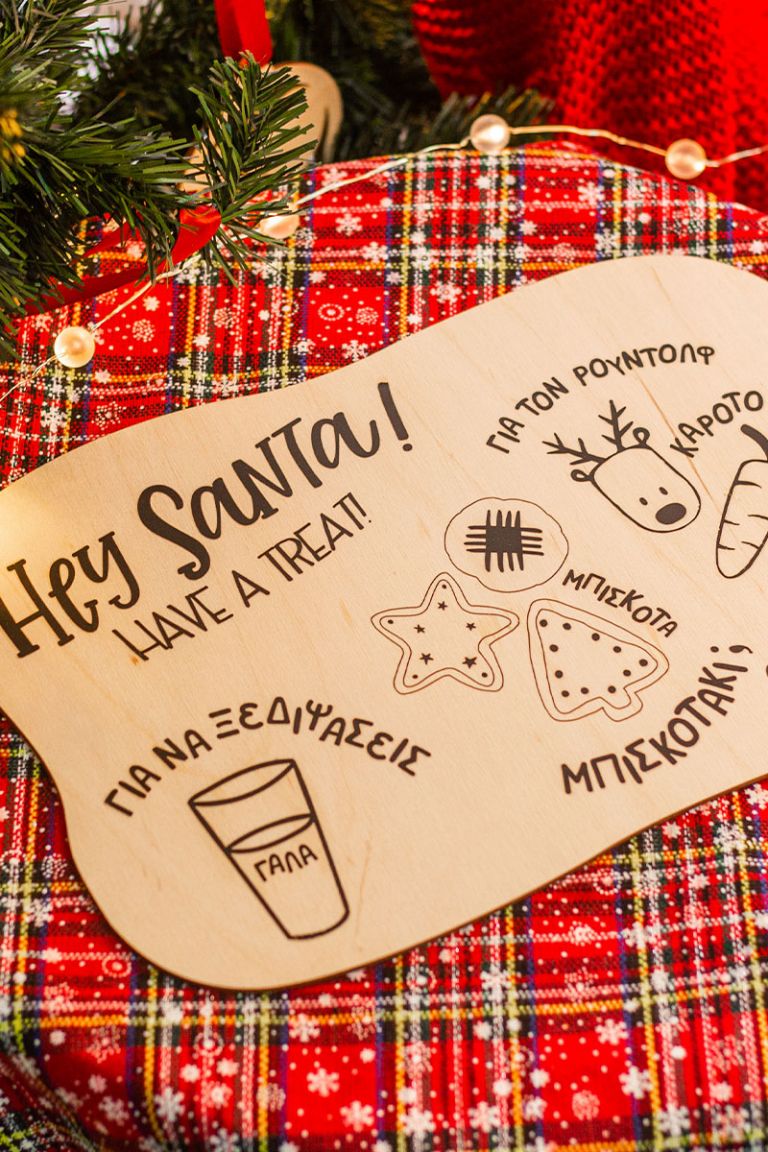 Hey Santa!
HAVE A TREAT!
ΓΙΑ ΤΟΝ ΡΟΥΝΤΟΛΦ
ΚΑΡΟΤΟ
ΜΠΙΣΚΟΤΑ
ΜΠΙΣΚΟΤΑΚΙ;
ΓΙΑ ΝΑ ΞΕΔΙΨΑΣΕΙΣ
ΓΑΛΑ